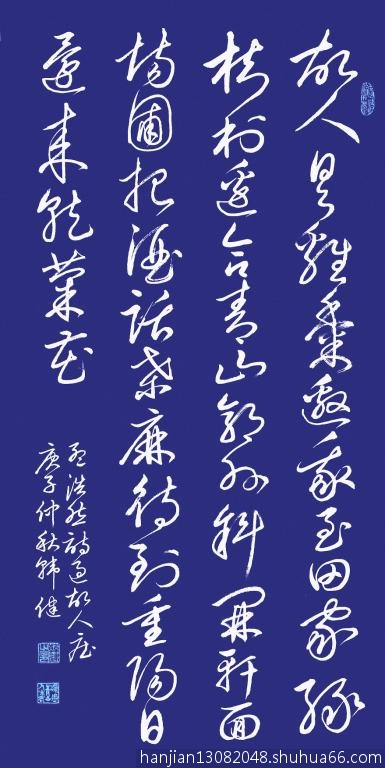 故人具雞黍邀我至田家綠
樹村邊合青山郭外斜開軒面
場圃把酒話桑麻待到重陽日
還來就菊花
孟浩然詩過故人莊
庚子仲秋韩健
hanjian13082048.shuhua66.com